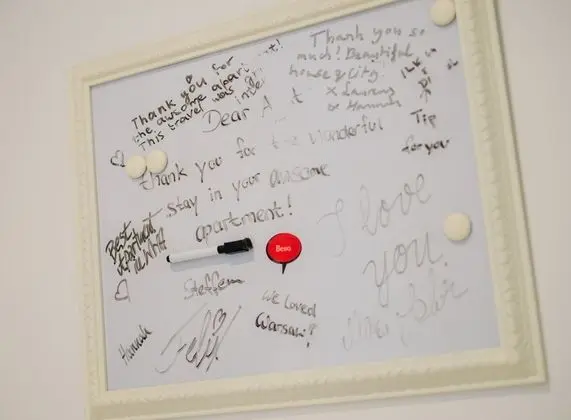 Thank you for
the awesome apart
This travel was
Thank you so
much! Beautiful
house & city!
x Laurens
& Hannah
Tip
for you
Dear A
thank you for the wonderful
stay in your awesome
apartment!
Steffen
Best
apartment
in
Beso
I love
you.
We loved
Warsaw!
Hannah
Felix